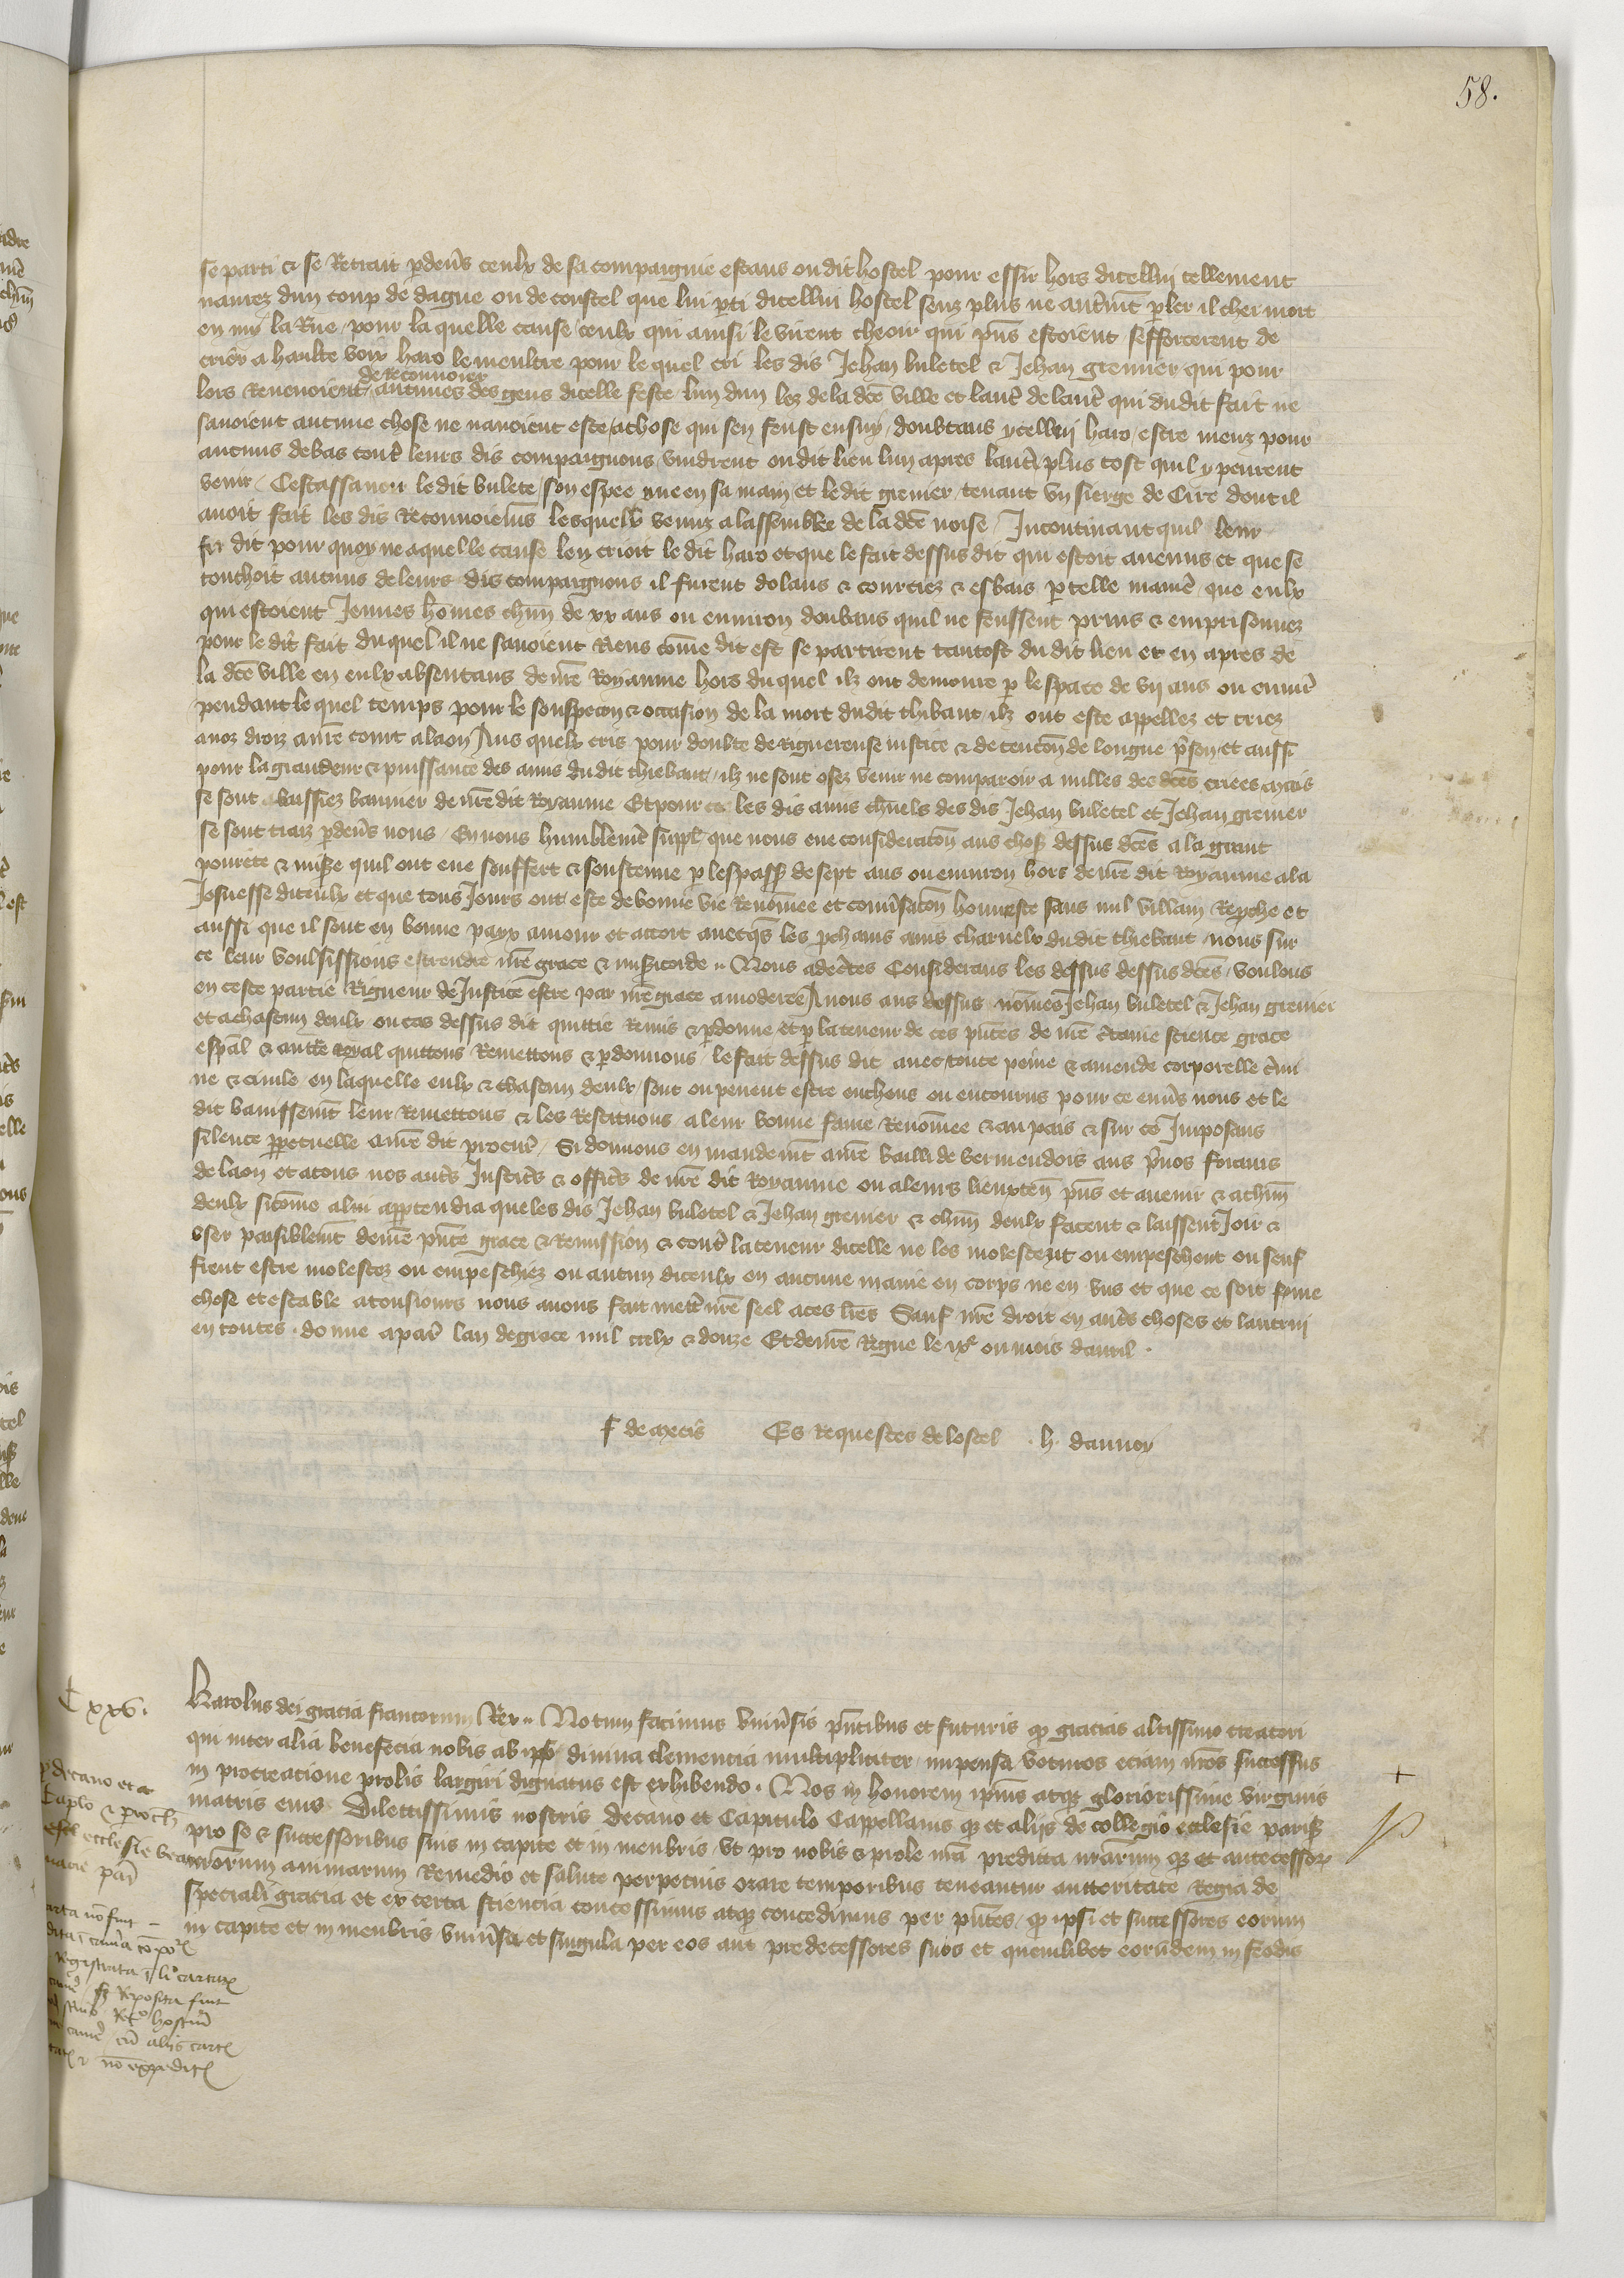 58.
se parti & se Retrait p deũs ceulx de sa compaignie estans ou dit hostel pour essir hors dicellui tellement
navrez dun coup de dague ou de coustel que lui p̱ti dicellui hostel senz plus ne autrem̃t p̱ler il cheï mort
en my la Rue / pour la quelle cause / ceulx qui ainsi le virent cheoir qui p̃ns estoient sefforcerent de
crier a haulte voix haro le meultre pour le quel cri les dis Jehan buletel & Jehan grenier qui pour
de Reconvoier
lors Revenoient / aucunes des gens dicelle feste lun dun lez de la dc̃e ville et lautr̃ de lautr̃ qui dudit fait ne
savoient aucune chose ne navoient este a chose qui sen feust ensuy / doubtans ycellui haro / estre meuz pour
aucuns debas contr̃ leurs dis compaignons / vindrent ou dit lieu lun apres lautr̃ plus tost quil y peurent
venir / Cestassavoir le dit bulete / son espee nue en sa main / et le dit grenier / tenant vn sierge de Cire dont il
avoit fait les dis Reconvoiem̃s lesquelx venuz a lassemblee de la dc̃e noise / Incontinant quil leur
fu dit pour quoy ne a quelle cause len crioit le dit haro et que le fait dessus dit qui estoit avenus et que se
touchoit aucuns de leurs dis compaignons il furent dolans & courciez & esbais p̱ telle manier̃ que eulx
qui estoient Jeunes hõmes chũn de xx ans ou environ doubtans quil ne feussent prins & emprisonnez
pour le dit fait du quel il ne savoient Riens com̃e dit est se partirent tantost du dit lieu et en apres de
la dc̃e ville en eulx absentans de nr̃e Royaume hors du quel ilz ont demoure p̱ lespace de vij ans ou envir̃
pendant le quel temps pour le souspecon & occasion de la mort dudit thibaut / ilz ont este appellez et criez
a noz droiz a nr̃e court a laon / Aus quelx cris pour doubte de Rigueureuse iustice & de tencõn de longue p̃son et aussi
pour la grandeur & puissance des amis du dit thiebaut / ilz ne sont osez venir ne comparoir a nulles des dc̃es criees / mais
se sont laissiez bannier de nr̃e dit Royaume Et pour ce les dis amis ch̃nels des dis Jehan buletel et Jehan grenier
se sont traiz p̱ deũs nous / En nous humblem̃t suppl̃ que nous eue consideracõn aus choß dessus dc̃es a la grant
povrete & miß̃e quil ont eue souffert & soustenue p̱ lespasse de sept ans ou environ hors de nr̃e dit Royaume a la
Josnesse diceulx et que tous Jours ont este de bonne vie Renõmee et conũsacõn honneste sans nul villain Rep̱che et
aussi que il sont en bonne paix amour et acort avecqs̃ les p̱chains amis charnelx du dit thiebaut / nous sur
ce leur voulsissions estendre nr̃e grace & miß̃icorde // Nous adec̃tes Considerans les dessus dessus dc̃es / voulons
en ceste partie Rigueur de Justice estre par nr̃e grace amoderee / A nous aus dessus nõmes Jehan buletel & Jehan grenier
et a chascun deulx ou cas dessus dit quittie Remis & p̱donne et p̱ la teneur de ces p̃ntes de nr̃e c̃taine science grace
esp̃al & auct̃e royal quittons Remettons & p̱donnons / le fait dessus dit avec toute peine & amende corporelle c̃mi
ne & civile en laquelle eulx & chascun deulx / sont ou pevent estre encheus ou encourus pour ce enũs nous et le
dit banissem̃t leur Remettons & les Restituons a leur bonne fame Renõmee & au pais & sur ce Imposans
silence perpetuelle a nr̃e dit procur̃ / Si donnons en mandem̃t a nr̃e bailli de vermendois aus p̃uos forains
de laon et a tous nos autr̃s Justic̃s & offic̃s de nr̃e dit Royaume ou a leurs lieuxten̄ p̃ns et avenir & a chũn
deulx sicõme a lui appartendra que les dis Jehan buletel & Jehan grenier & chũn deulx facent & laissent Joir &
vser paisiblem̃t de nr̃e p̃nte grace & Remission & contr̃ la teneur dicelle ne les molestent ou empeschent ou seuf
frent estre molestez ou empeschiez ou aucun diceulx en aucune maniẽ en corps ne en biens et que ce soit ferme
chose et estable a tousiours nous avons fait mettr̃ nr̃e seel a ces lr̃es Sauf nr̃e droit en autr̃s choses et lautrui
en toutes . donne a par̃ lan de grace mil ccclx & douze Et de nr̃e Regne le ixe ou mois davril .
f de metis Es Requestes de lostel . h. daunoy
C xxv.
Karolus dei gracia francorum Rex // Notum facimus vniũsis p̃ntibus et futuris qɜ gracias altissimo creatori
qui inter alia beneficia nobis ab ipsius divina clemencia multipliciter impensa votivos eciam nr̃os successus
in procreacione prolis largiri dignatus est exhibendo . Nos in honorem ip̃ius atqɜ gloriosissime virginis
matris eius Dilectissimis nostris decano et Capitulo Capellanis qɜ et alijs de collegio ecclesie pariß
pro se & successoribus suis in capite et in menbris vt pro nobis & prole nr̃a predicta nr̃arum qɜ et antecessoꝝ
nr̃orum animarum Remedio et salute perpetuis orare temporibus teneantur auctoritate Regia de
speciali gracia et ex certa sciencia concessimus atqɜ concedimus per p̃ntes / qɜ ipsi et successores eorum
in capite et in menbris vniũsa et singula per eos aut predecessores suos et quemlibet eorundem in feodis
p̱ decano et
Caplo & p̱
ecclesie beate
marie par̃
carta nõ fuit
Registrata ĩ li° cartaꝝ
sɜ Reposita fuit
cũ alijs cartꝭ
nõ expeditꝭ